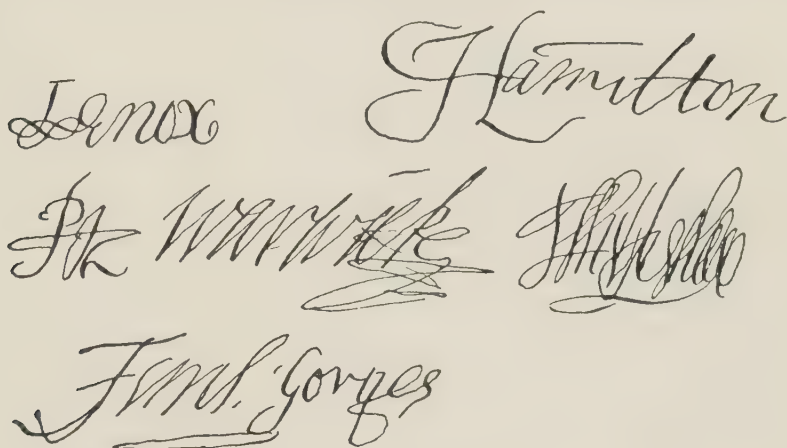 Lenox Hamilton
Ro Warwick
Ferd. Gorges